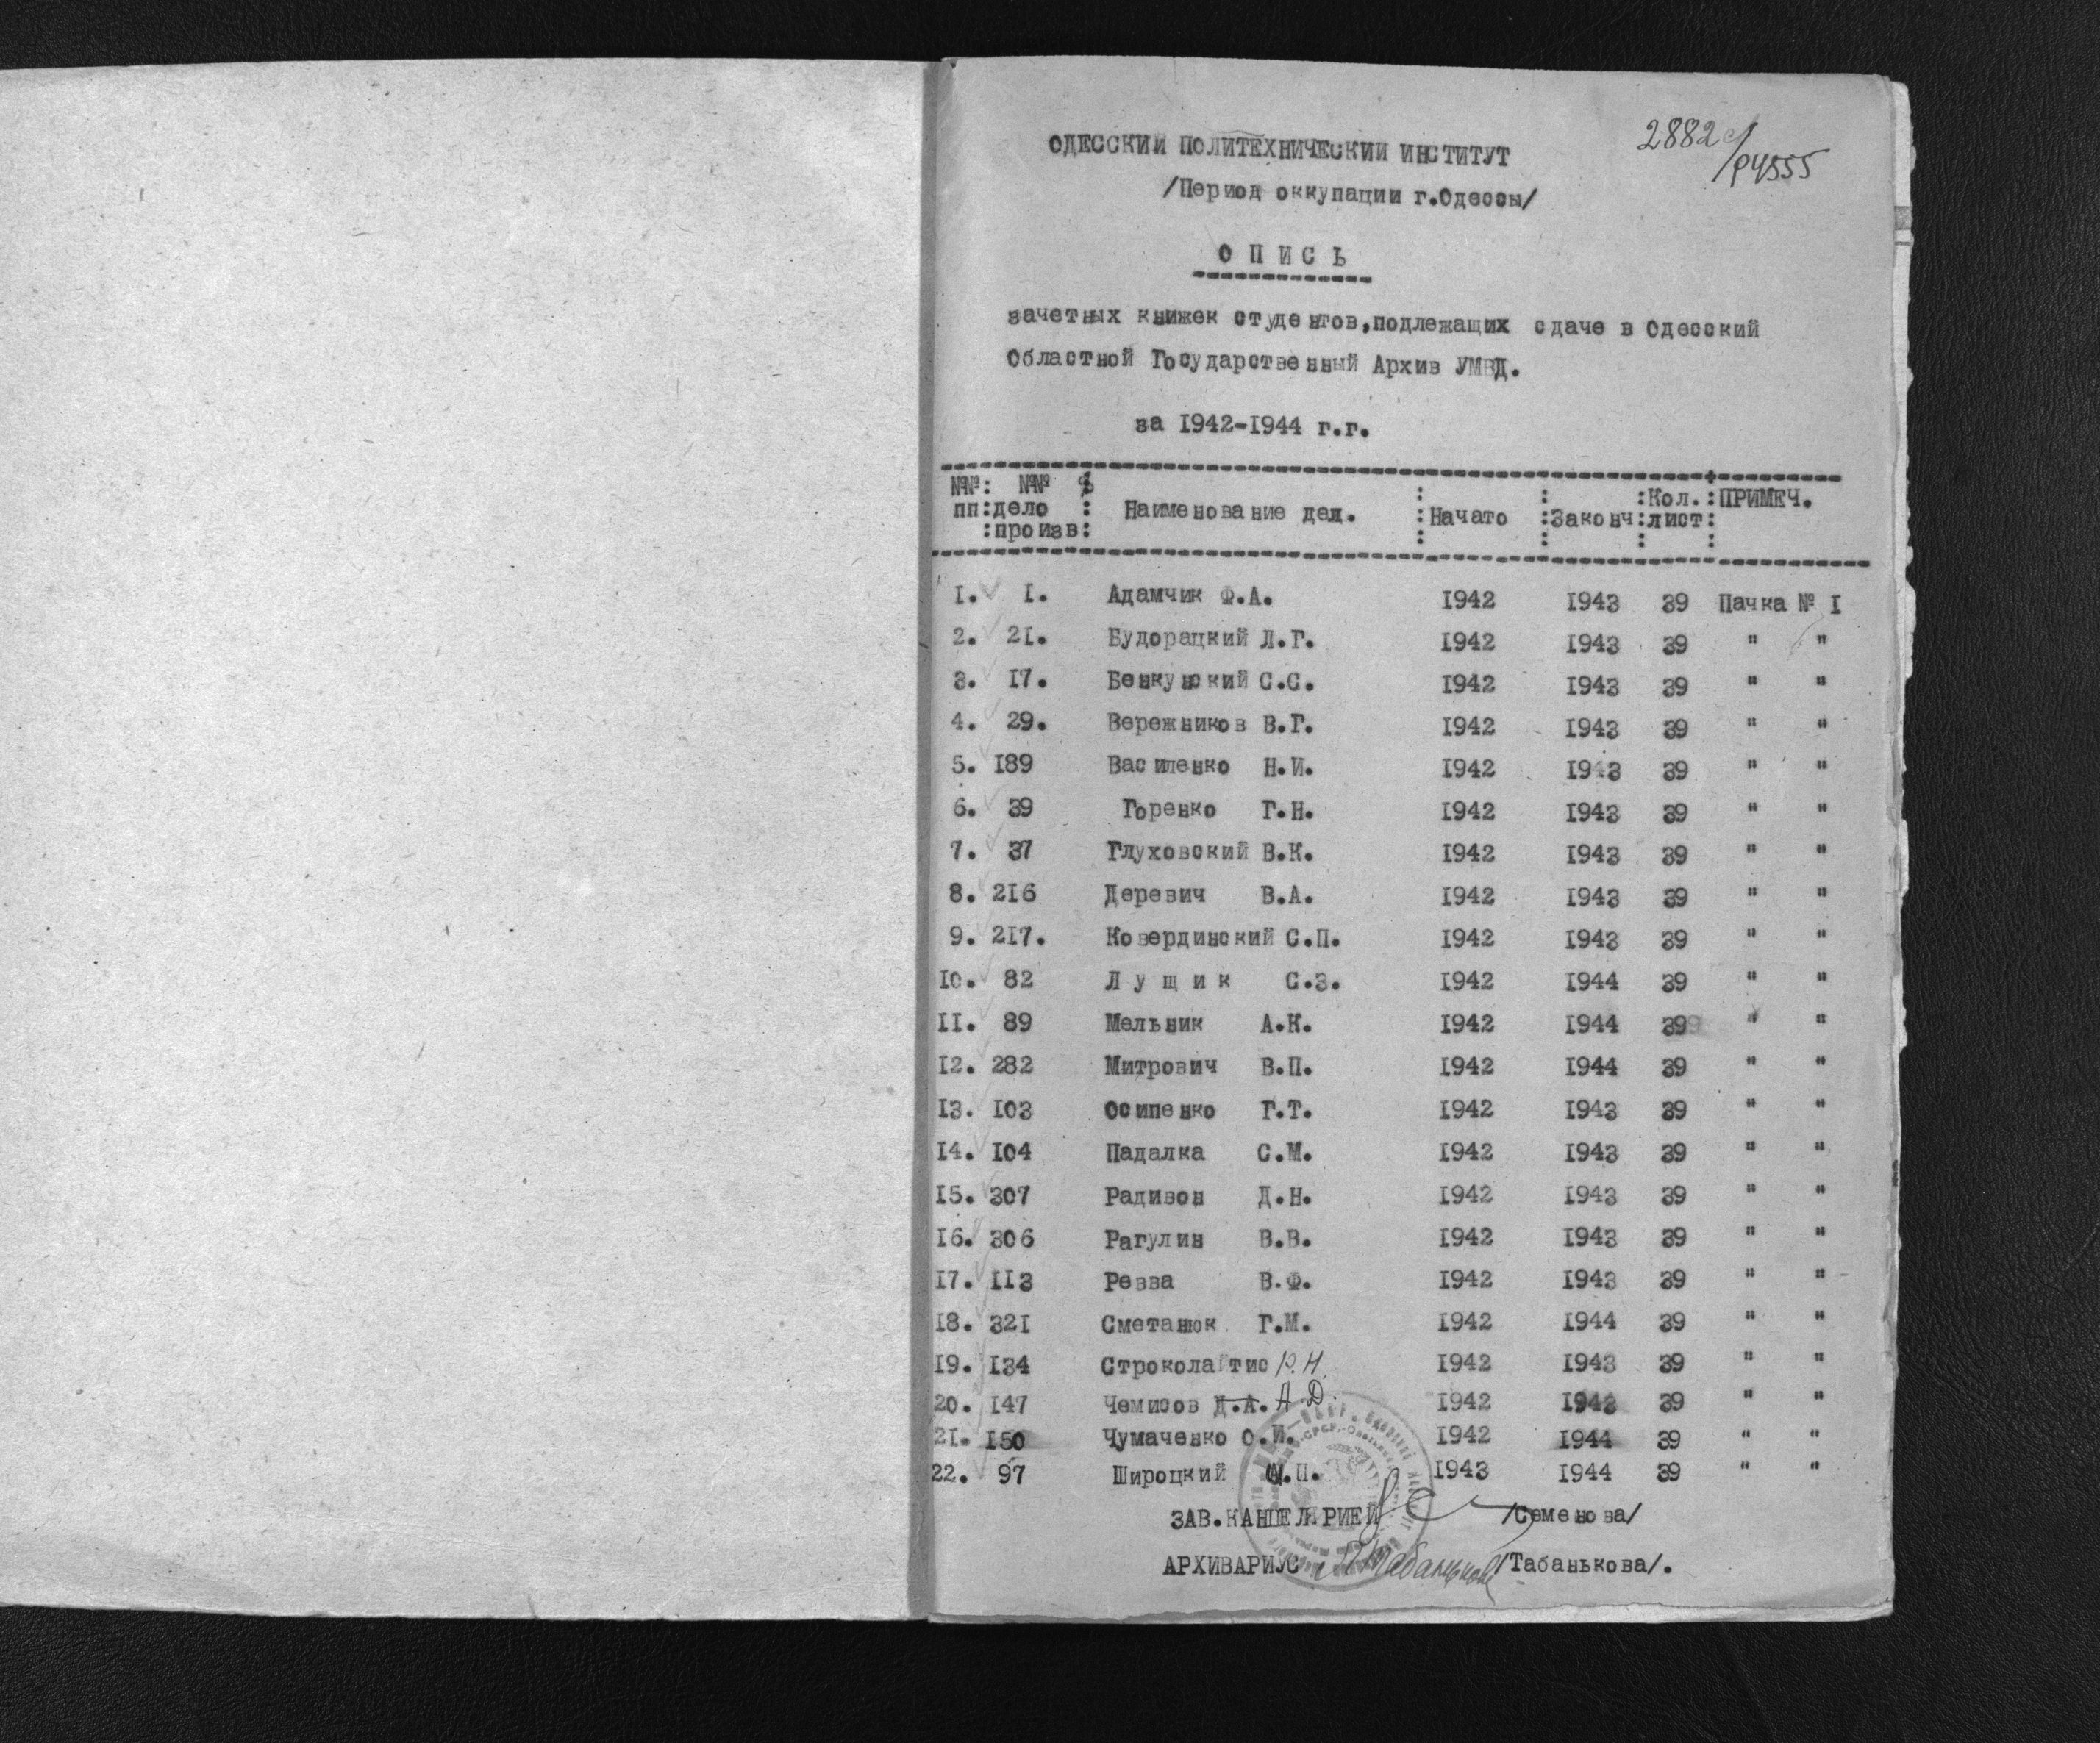 2882с/р4555
ОДЕССКИЙ ПОЛИТЕХНИЧЕСКИЙ ИНСТИТУТ
/Период оккупации г.Одессы/
О П И С Ь
зачетных книжек студентов,подлежащих сдаче в Одесский
Областной Государственный Архив УМВД.
за 1942-1944 г.г.
№№: №№
пп:дело : Наименование дел. :Начато :Законч:Кол. лист:ПРИМЕЧ.
:произв:
1. 1. Адамчик Ф.А. 1942 1943 39 Пачка № 1
2. 21. Будорацкий Л.Г. 1942 1943 39 " "
3. 17. Бенкунский С.С. 1942 1943 39 " "
4. 29. Вережников В.Г. 1942 1943 39 " "
5. 189 Василенко Н.И. 1942 1943 39 " "
6. 39 Горенко Г.Н. 1942 1943 39 " "
7. 37 Глуховский В.К. 1942 1943 39 " "
8. 216 Деревич В.А. 1942 1943 39 " "
9. 217. Ковердинский С.П. 1942 1943 39 " "
10. 82 Л у щ и к С.З. 1942 1944 39 " "
11. 89 Мельник А.К. 1942 1944 39 " "
12. 282 Митрович В.П. 1942 1944 39 " "
13. 103 Осипенко Г.Т. 1942 1943 39 " "
14. 104 Падалка С.М. 1942 1943 39 " "
15. 307 Радивон Д.Н. 1942 1943 39 " "
16. 306 Рагулин В.В. 1942 1943 39 " "
17. 113 Резва В.Ф. 1942 1943 39 " "
18. 321 Сметанюк Г.М. 1942 1944 39 " "
19. 134 Строколайтис Р.Н. 1942 1943 39 " "
20. 147 Чемисов Д.А. А.Д. 1942 1943 39 " "
21. 150 Чумаченко О.И. 1942 1944 39 " "
22. 97 Широцкий М.П. 1943 1944 39 " "
ЗАВ.КАНЦЕЛЯРИЕЙ /Семенова/
АРХИВАРИУС Табанькова /Табанькова/.